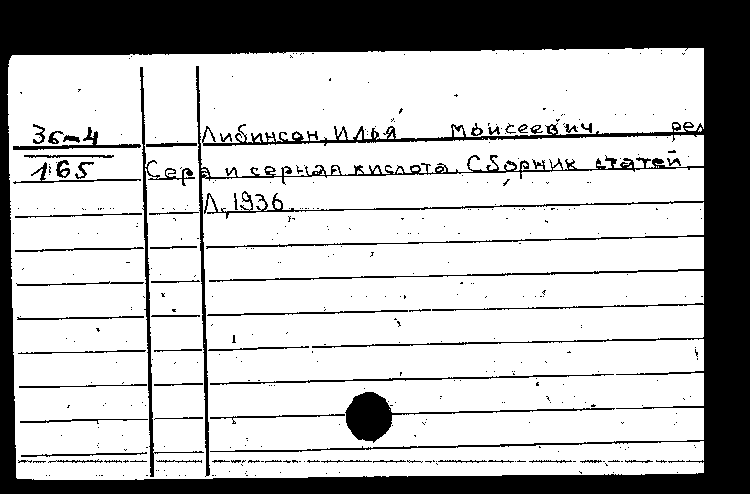 36-4 Либинсон, Илья Моисеевич. ред
165 Сера и серная кислота. Сборник статей.
Л., 1936.